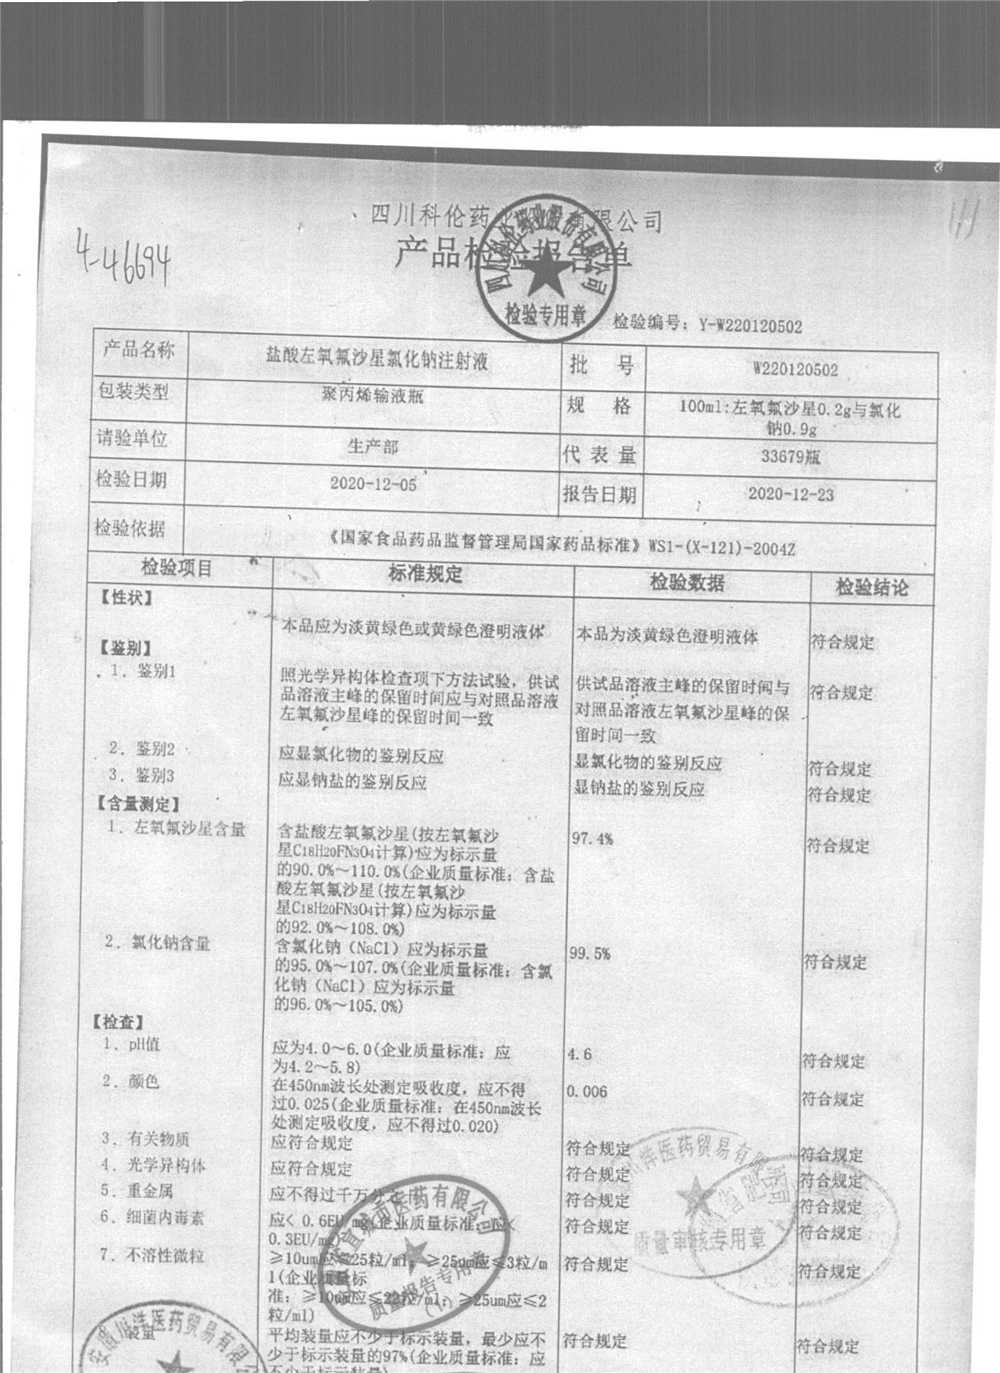 四川科伦药业股份有限公司
产品检验报告单
4-46694
四川科伦药业股份有限公司
检验专用章
检验编号：Y-W220120502
产品名称 盐酸左氧氟沙星氯化钠注射液 批 号 W220120502
包装类型 聚丙烯输液瓶 规 格 100ml:左氧氟沙星0.2g与氯化
钠0.9g
请验单位 生产部 代 表 量 33679瓶
检验日期 2020-12-05 报告日期 2020-12-23
检验依据 《国家食品药品监督管理局国家药品标准》WS1-(X-121)-2004Z
检验项目 标准规定 检验数据 检验结论
【性状】
本品应为淡黄绿色或黄绿色澄明液体 本品为淡黄绿色澄明液体 符合规定
【鉴别】
1．鉴别1 照光学异构体检查项下方法试验，供试 供试品溶液主峰的保留时间与 符合规定
品溶液主峰的保留时间应与对照品溶液 对照品溶液左氧氟沙星峰的保
左氧氟沙星峰的保留时间一致 留时间一致
2．鉴别2 应显氯化物的鉴别反应 显氯化物的鉴别反应 符合规定
3．鉴别3 应显钠盐的鉴别反应 显钠盐的鉴别反应 符合规定
【含量测定】
1．左氧氟沙星含量 含盐酸左氧氟沙星(按左氧氟沙 97.4% 符合规定
星C18H20FN3O4计算)应为标示量
的90.0%～110.0%(企业质量标准：含盐
酸左氧氟沙星(按左氧氟沙
星C18H20FN3O4计算)应为标示量
的92.0%～108.0%)
2．氯化钠含量 含氯化钠（NaCl）应为标示量 99.5% 符合规定
的95.0%～107.0%(企业质量标准：含氯
化钠（NaCl）应为标示量
的96.0%～105.0%)
【检查】
1．pH值 应为4.0～6.0(企业质量标准：应 4.6 符合规定
为4.2～5.8)
2．颜色 在450nm波长处测定吸收度，应不得 0.006 符合规定
过0.025(企业质量标准：在450nm波长
处测定吸收度，应不得过0.020)
3．有关物质 应符合规定 符合规定 符合规定
4．光学异构体 应符合规定 符合规定 符合规定
5．重金属 应不得过千万分之 符合规定 符合规定
6．细菌内毒素 应< 0.6EU/mg(企业质量标准：应< 符合规定 符合规定
0.3EU/mg)
7．不溶性微粒 ≥10um应≤25粒/ml，≥25um应≤3粒/m 符合规定 符合规定
l(企业质量标
准：≥10um应≤22粒/ml；≥25um应≤2
粒/ml)
装量 平均装量应不少于标示装量，最少应不 符合规定 符合规定
少于标示装量的97%(企业质量标准：应
不少于标示装量)
医药有限公司
质量报告专用章
(1)
洋医药贸易有限
质量审核专用章
安徽川洋医药贸易有限公